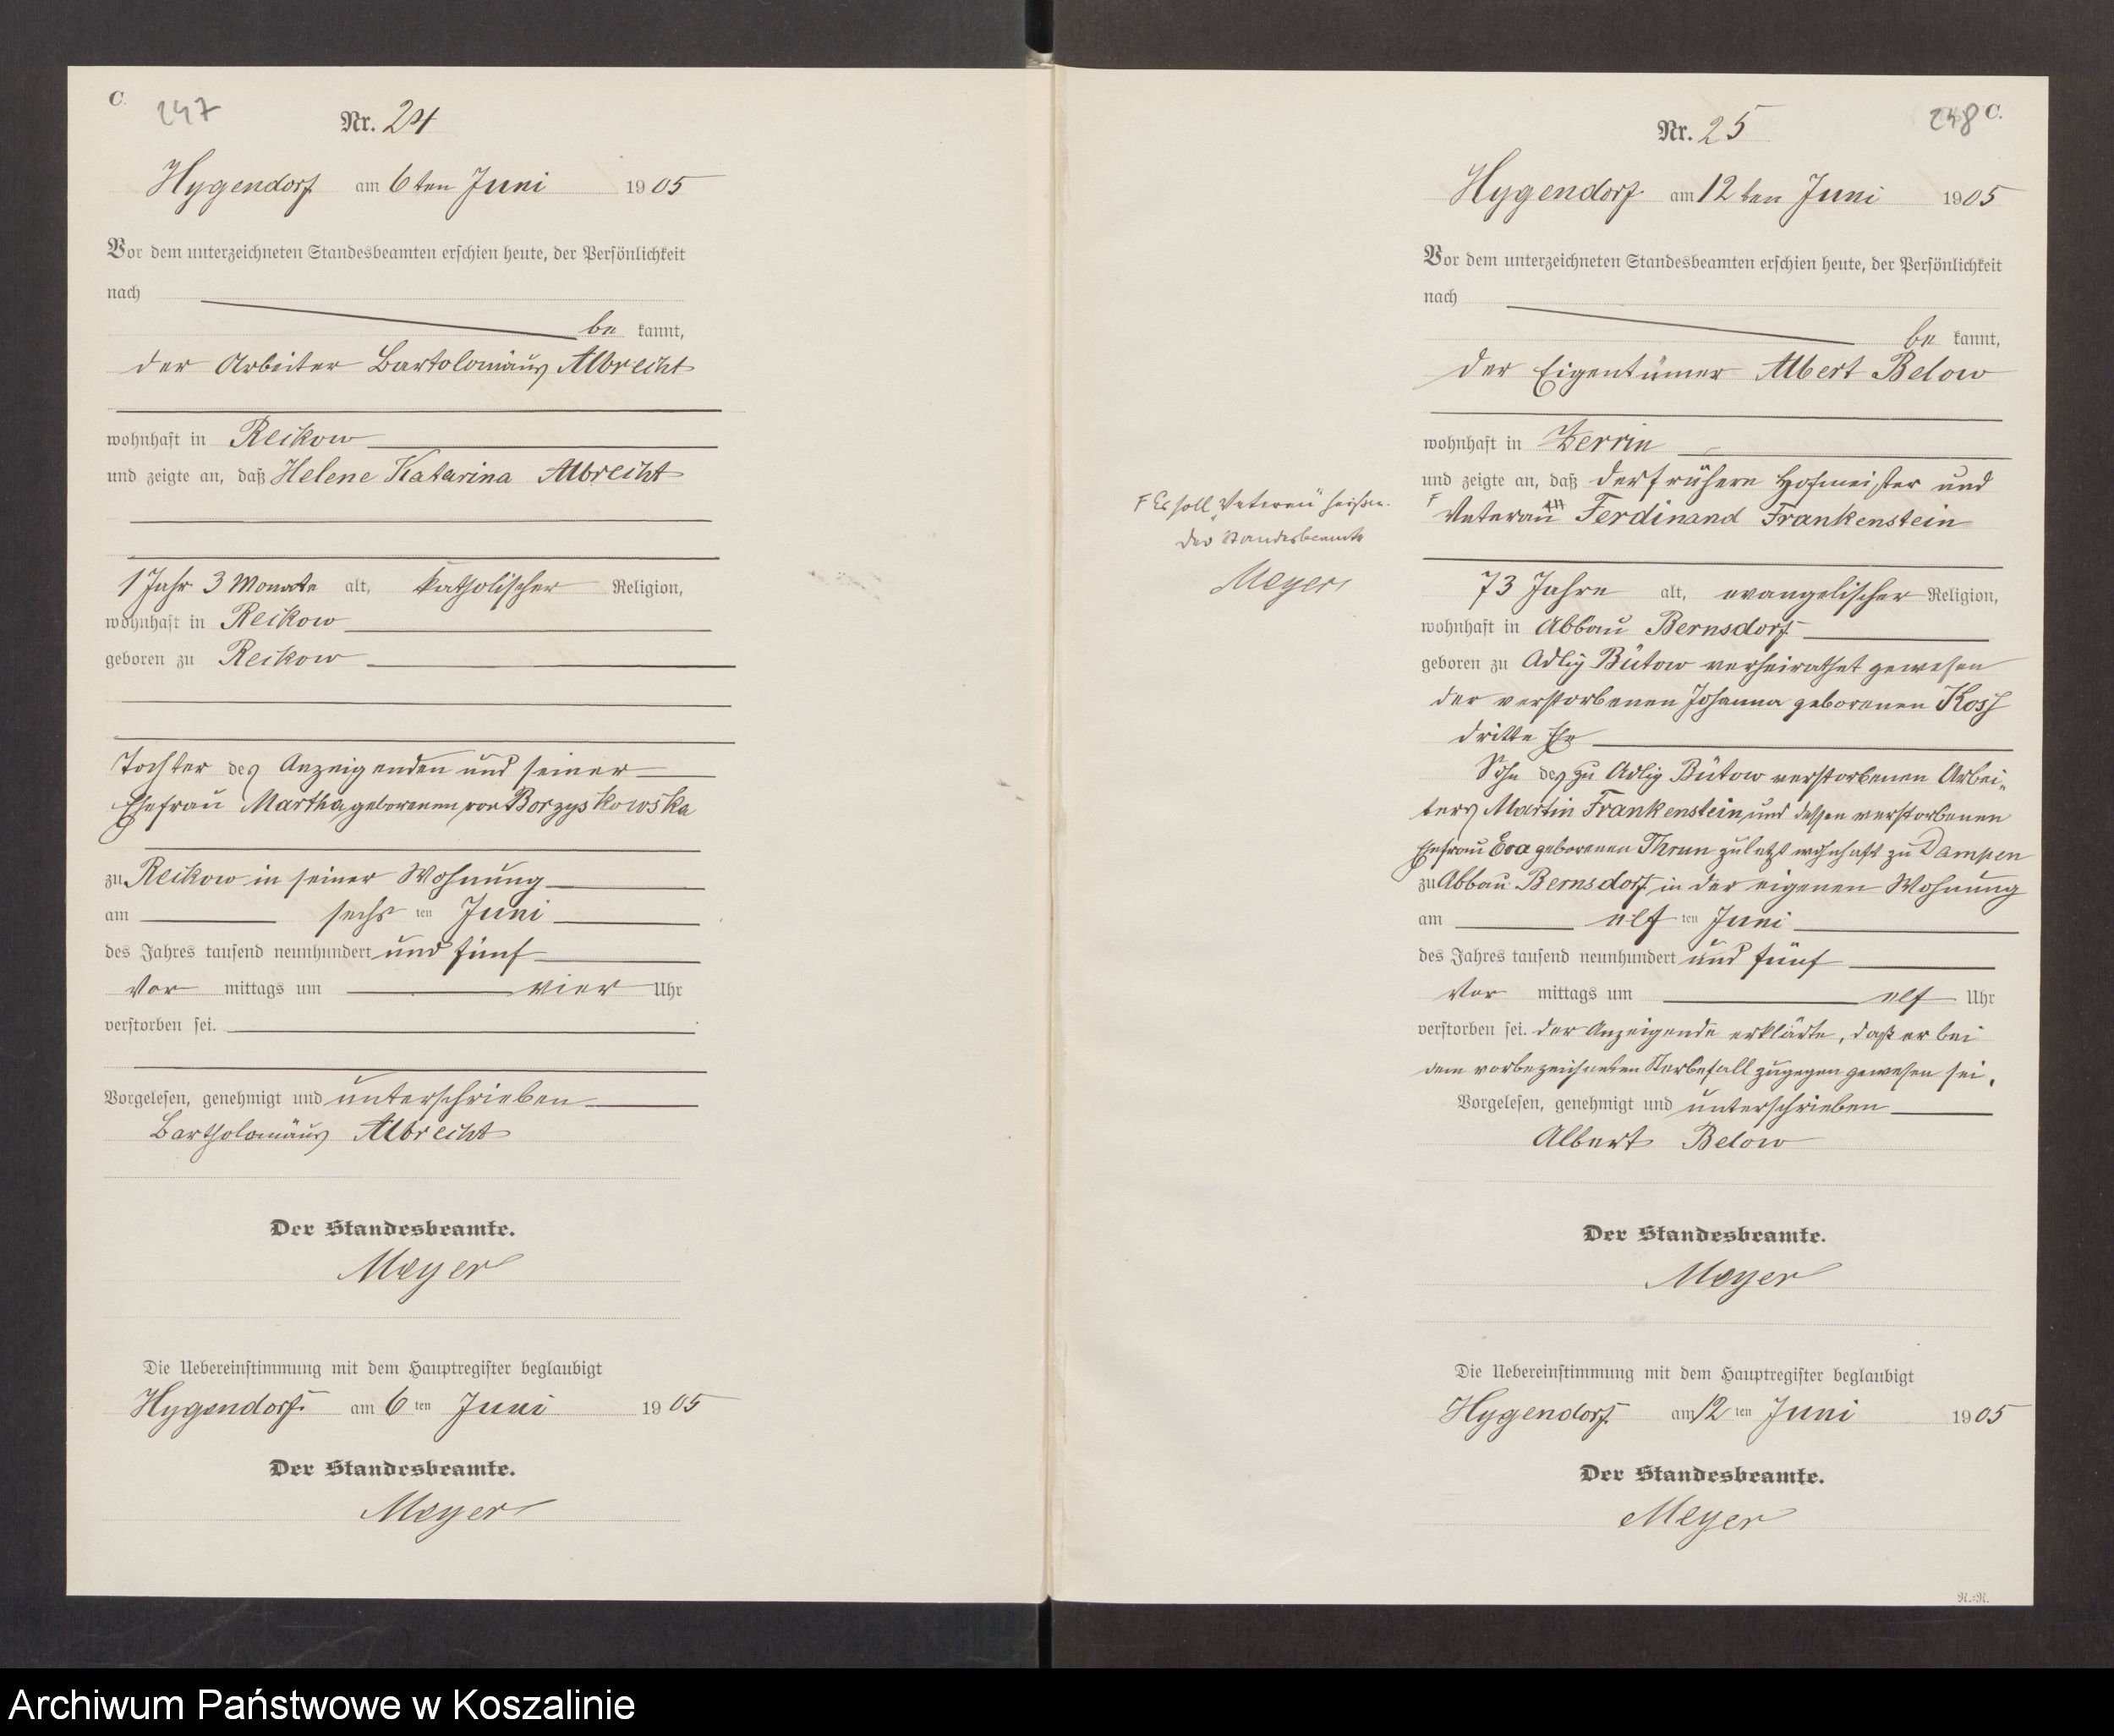 C.
247
Nr. 24
Hygendorf am 6ten Juni 1905
Vor dem unterzeichneten Standesbeamten erschien heute, der Persönlichkeit
nach
be kannt,
der Arbeiter Bartolomäus Albrecht
wohnhaft in Reikow
und zeigte an, daß Helene Katarina Albrecht
1 Jahr 3 Monate alt, katholischer Religion,
wohnhaft in Reikow
geboren zu Reikow
Tochter des Anzeigenden und seiner
Ehefrau Martha geborenen von Borzyskowska
zu Reikow in seiner Wohnung
am sechs ten Juni
des Jahres tausend neunhundert und fünf
Vor mittags um vier Uhr
verstorben sei.
Vorgelesen, genehmigt und unterschrieben
Bartholomäus Albrecht
Der Standesbeamte.
Meyer
Die Uebereinstimmung mit dem Hauptregister beglaubigt
Hygendorf am 6 ten Juni 1905
Der Standesbeamte.
Meyer
248 C.
Nr. 25
Hygendorf am 12ten Juni 1905
Vor dem unterzeichneten Standesbeamten erschien heute, der Persönlichkeit
nach
be kannt,
der Eigentümer Albert Below
wohnhaft in Zerrin
und zeigte an, daß der frühere Hofmeister und
F Veteran Ferdinand Frankenstein
F Es soll „Veteran" heißen.
Der Standesbeamte
Meyer
73 Jahre alt, evangelischer Religion,
wohnhaft in Abbau Bernsdorf
geboren zu Adlig Bütow verheirathet gewesen
der verstorbenen Johanna geborenen Koss
dritte Ehe
Sohn des zu Adlig Bütow verstorbenen Arbei-
ters Martin Frankenstein und dessen verstorbenen
Ehefrau Eva geborenen Thrun zuletzt wohnhaft zu Dampen
zu Abbau Bernsdorf in der eigenen Wohnung
am elf ten Juni
des Jahres tausend neunhundert und fünf
Vor mittags um elf Uhr
verstorben sei. Der Anzeigende erklärte, daß er bei
dem vorbezeichneten Sterbefall zugegen gewesen sei.
Vorgelesen, genehmigt und unterschrieben
Albert Below
Der Standesbeamte.
Meyer
Die Uebereinstimmung mit dem Hauptregister beglaubigt
Hygendorf am 12 ten Juni 1905
Der Standesbeamte.
Meyer
R.=R.
Archiwum Państwowe w Koszalinie